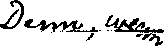 Denn, wenn